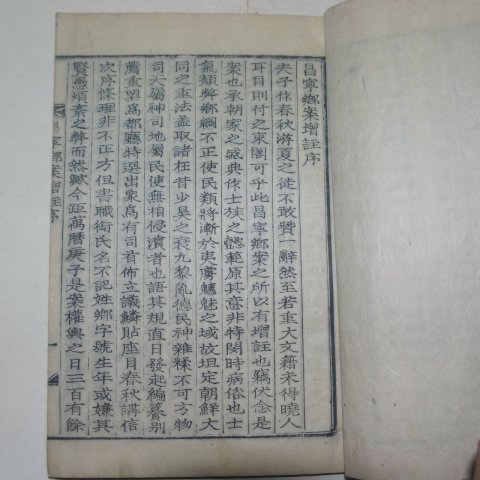 昌寧鄉案增註序
夫子作春秋游夏之徒不敢贊一辭然至若重大文籍未得曉人
耳目則付之束閣可乎此昌寧鄉案之所以有增註也竊伏念是
案也承朝家之盛典作士族之懿範原其意非特閔時病俗也士
氣頹弊鄉綱不正使民類將漸於夷虜魑魅之域故坦定朝鮮大
同之重法盖取諸在昔少昊之衰九黎亂德民神雜糅不可方物
司天屬神司地屬民使無相侵瀆者也語其規直日發起編纂別
薦重望爲都廳特選出衆爲有司首佈立議鱗貼座目春秋講信
次序條理非不正方但書職銜氏名不記姓鄉字號生年或嫌其
賢愚煩紊之弊而然歟今距萬曆庚子是案權輿之日三百有餘
昌寧鄉案增註序
一